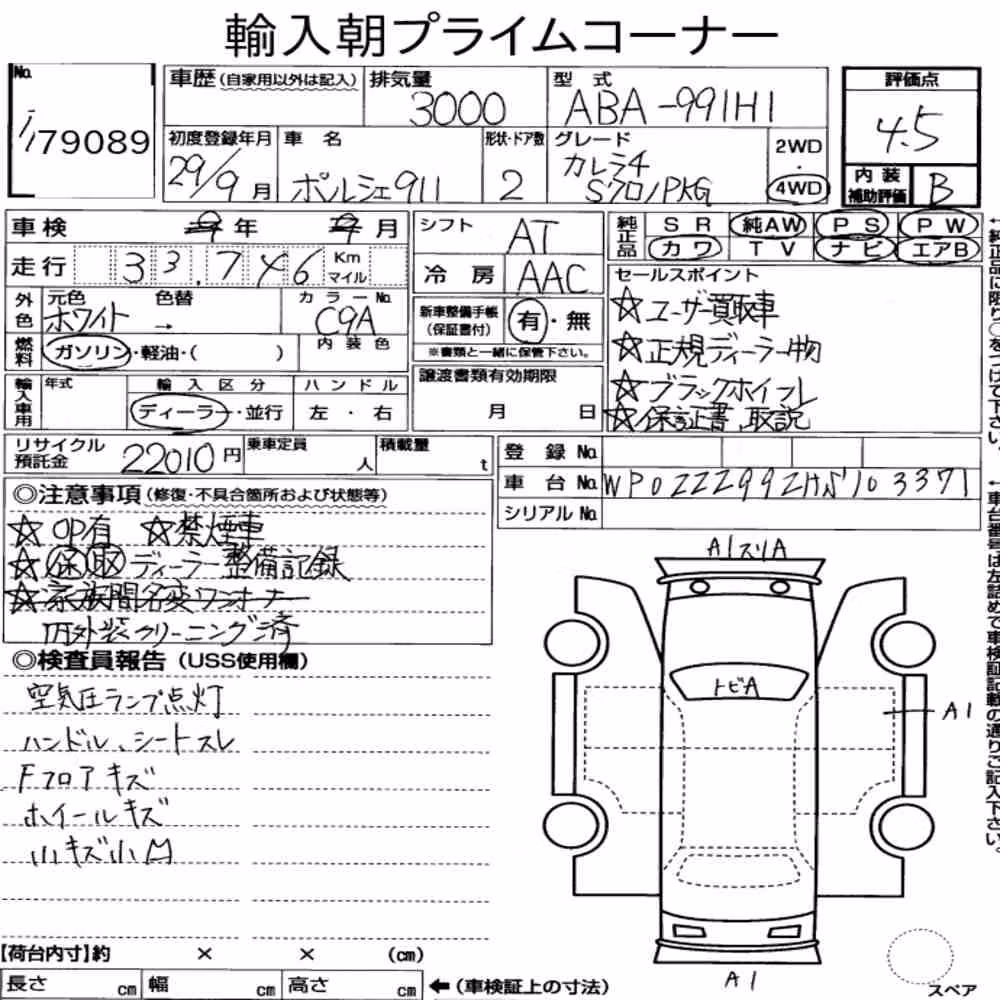 輸入朝プライムコーナー
No.
79089
車歴(自家用以外は記入) 排気量 3000 型式 ABA-991H1
評価点 4.5
初度登録年月 29/9月 車名 ポルシェ911 形状・ドア数 2 グレード カレラ4 2WD・4WD
内装補助評価 B
車検 年 月
走行 33,746 Km マイル
外色 元色 ホワイト 色替 → カラーNo. C9A
燃料 ガソリン・軽油・( ) 内装色
輸入車用 年式 輸入区分 ディーラー・並行 ハンドル 左・右
シフト AT
冷房 AAC
新車整備手帳(保証書付) 有・無
※書類と一緒に保管下さい。
譲渡書類有効期限 月 日
純正品 SR 純AW PS PW
カワ TV ナビ エアB
セールスポイント
☆ユーザー買取車
☆正規ディーラー物
☆ブラックホイール
☆保証書、取説
リサイクル預託金 22010円 乗車定員 人 積載量 t
登録No.
車台No. WP0ZZZ99ZHS103371
シリアルNo.
◎注意事項(修復・不具合箇所および状態等)
☆OP有 ☆禁煙車
☆保取ディーラー整備記録
☆家族間名変ワンオーナー
内外装クリーニング済
◎検査員報告(USS使用欄)
空気圧ランプ点灯
ハンドル、シートスレ
Fフロアキズ
ホイールキズ
小キズ小凹
A1スリA
トビA
A1
A1
スペア
【荷台内寸】約 × × (cm)
長さ cm 幅 cm 高さ cm ←(車検証上の寸法)
←純正品に限り○をつけて下さい。
←車台番号は左詰めで車検証記載の通りご記入下さい。